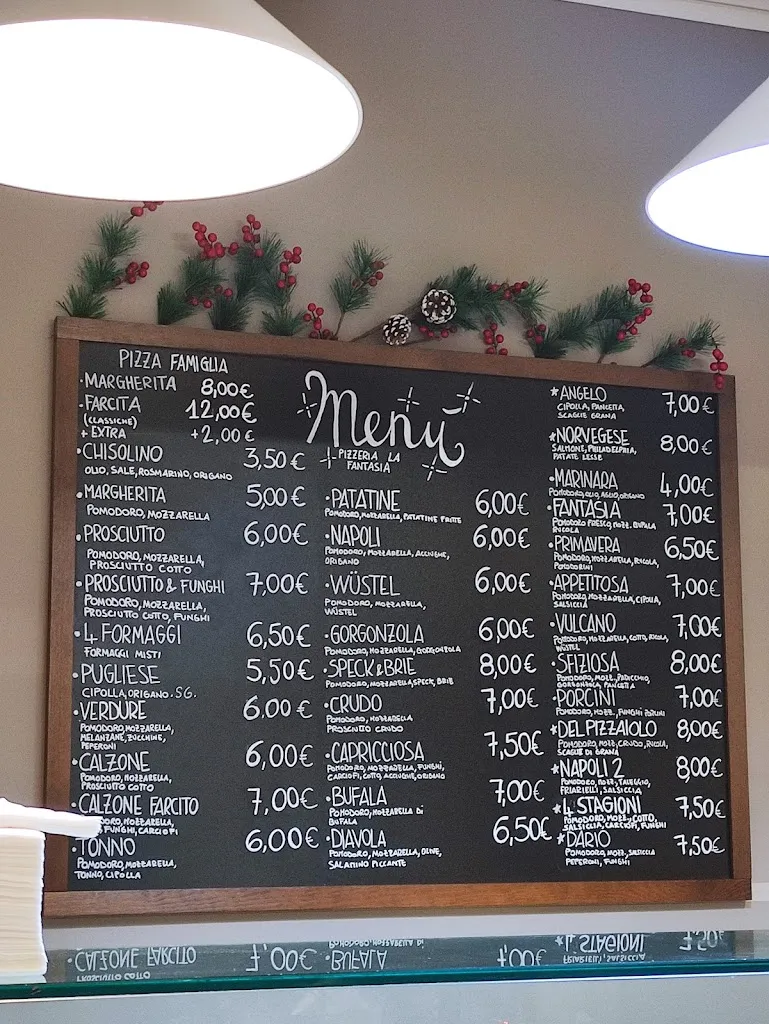 PIZZA FAMIGLIA
·MARGHERITA 8,00€
·FARCITA 12,00€
(CLASSICHE)
+ EXTRA +2,00€
·CHISOLINO 3,50€
OLIO, SALE, ROSMARINO, ORIGANO
·MARGHERITA 5,00€
POMODORO, MOZZARELLA
·PROSCIUTTO 6,00€
POMODORO, MOZZARELLA,
PROSCIUTTO COTTO
·PROSCIUTTO & FUNGHI 7,00€
POMODORO, MOZZARELLA,
PROSCIUTTO COTTO, FUNGHI
·4 FORMAGGI 6,50€
FORMAGGI MISTI
·PUGLIESE 5,50€
CIPOLLA, ORIGANO. SG.
·VERDURE 6,00€
POMODORO, MOZZARELLA,
MELANZANE, ZUCCHINE,
PEPERONI
·CALZONE 6,00€
POMODORO, MOZZARELLA,
PROSCIUTTO COTTO
·CALZONE FARCITO 7,00€
MOZZARELLA,
FUNGHI, CARCIOFI
·TONNO 6,00€
POMODORO, MOZZARELLA,
TONNO, CIPOLLA
Menù
PIZZERIA LA
FANTASIA
·PATATINE 6,00€
POMODORO, MOZZARELLA, PATATINE FRITTE
·NAPOLI 6,00€
POMODORO, MOZZARELLA, ACCIUGHE,
ORIGANO
·WÜSTEL 6,00€
POMODORO, MOZZARELLA,
WÜSTEL
·GORGONZOLA 6,00€
POMODORO, MOZZARELLA, GORGONZOLA
·SPECK&BRIE 8,00€
POMODORO, MOZZARELLA, SPECK, BRIE
·CRUDO 7,00€
POMODORO, MOZZARELLA
PROSCIUTTO CRUDO
·CAPRICCIOSA 7,50€
POMODORO, MOZZARELLA, FUNGHI,
CARCIOFI, COTTO, ACCIUGHE, ORIGANO
·BUFALA 7,00€
POMODORO, MOZZARELLA DI
BUFALA
·DIAVOLA 6,50€
POMODORO, MOZZARELLA, OLIVE,
SALAMINO PICCANTE
*ANGELO 7,00€
CIPOLLA, PANCETTA,
SCAGLIE GRANA
*NORVEGESE 8,00€
SALMONE, PHILADELPHIA,
PATATE LESSE
·MARINARA 4,00€
POMODORO, OLIO, AGLIO, ORIGANO
·FANTASIA 7,00€
POMODORO FRESCO, MOZZ. BUFALA
RUCOLA
·PRIMAVERA 6,50€
POMODORO, MOZZARELLA, RUCOLA,
POMODORINI
·APPETITOSA 7,00€
POMODORO, MOZZARELLA, CIPOLLA,
SALSICCIA
·VULCANO 7,00€
POMODORO, MOZZARELLA, COTTO, RUCOLA,
WÜSTEL
·SFIZIOSA 8,00€
POMODORO, MOZZ., RADICCHIO,
GORGONZOLA, PANCETTA
·PORCINI 7,00€
POMODORO, MOZZ., FUNGHI PORCINI
*DEL PIZZAIOLO 8,00€
POMODORO, MOZZ., CRUDO, RUCOLA,
SCAGLIE DI GRANA
*NAPOLI 2 8,00€
POMODORO, MOZZ., TALEGGIO,
FRIARIELLI, SALSICCIA
*4 STAGIONI 7,50€
POMODORO, MOZZ., COTTO,
SALSICCIA, CARCIOFI, FUNGHI
*DARIO 7,50€
POMODORO, MOZZ., SALSICCIA
PEPERONI, FUNGHI